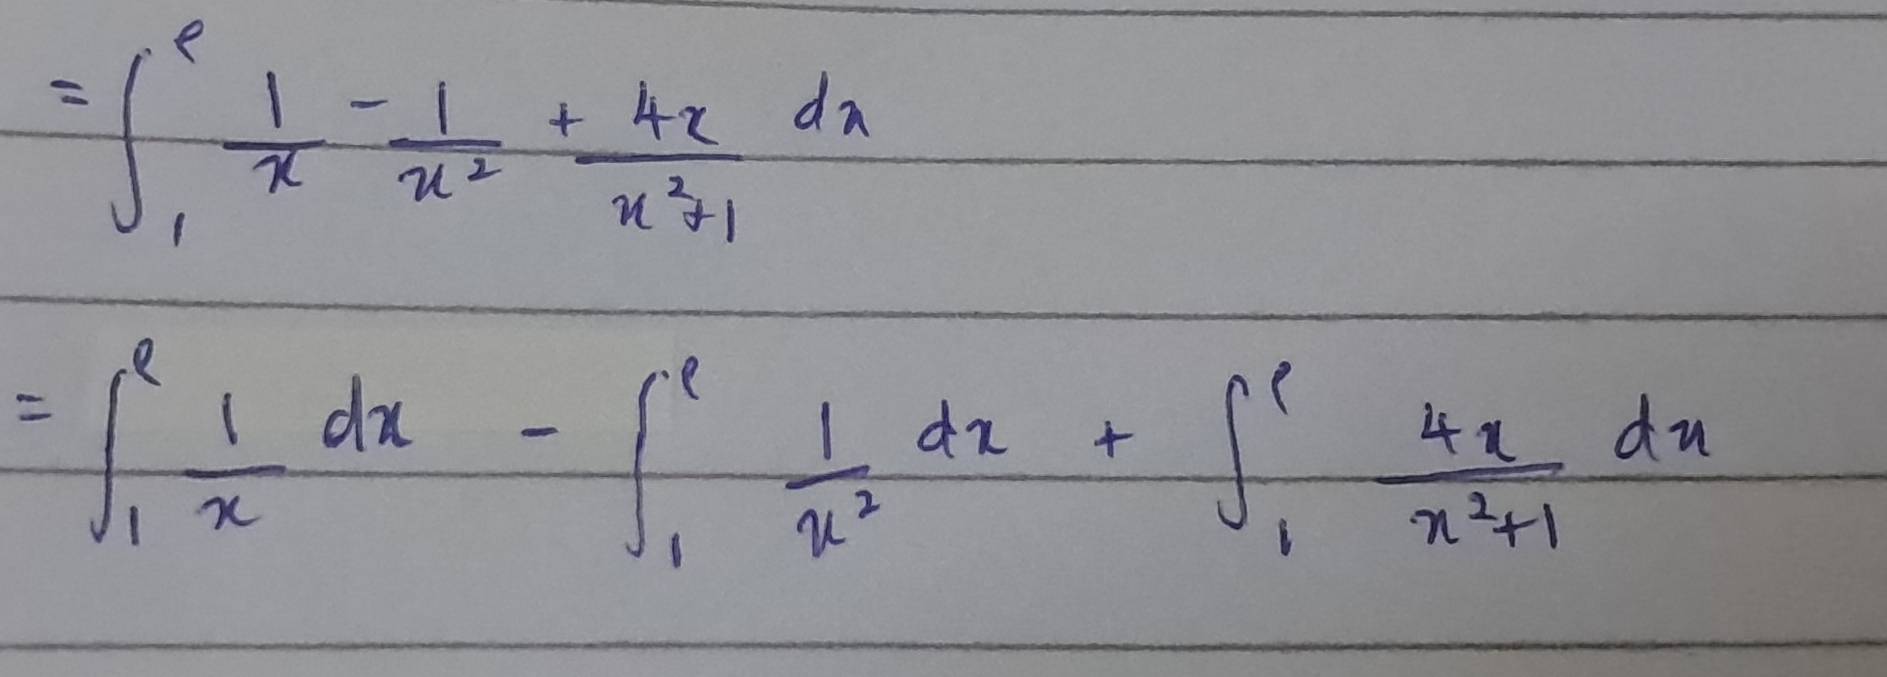 = ∫₁ᵉ 1/x - 1/x² + 4x/(x²+1) dx
= ∫₁ᵉ 1/x dx - ∫₁ᵉ 1/x² dx + ∫₁ᵉ 4x/(x²+1) dx